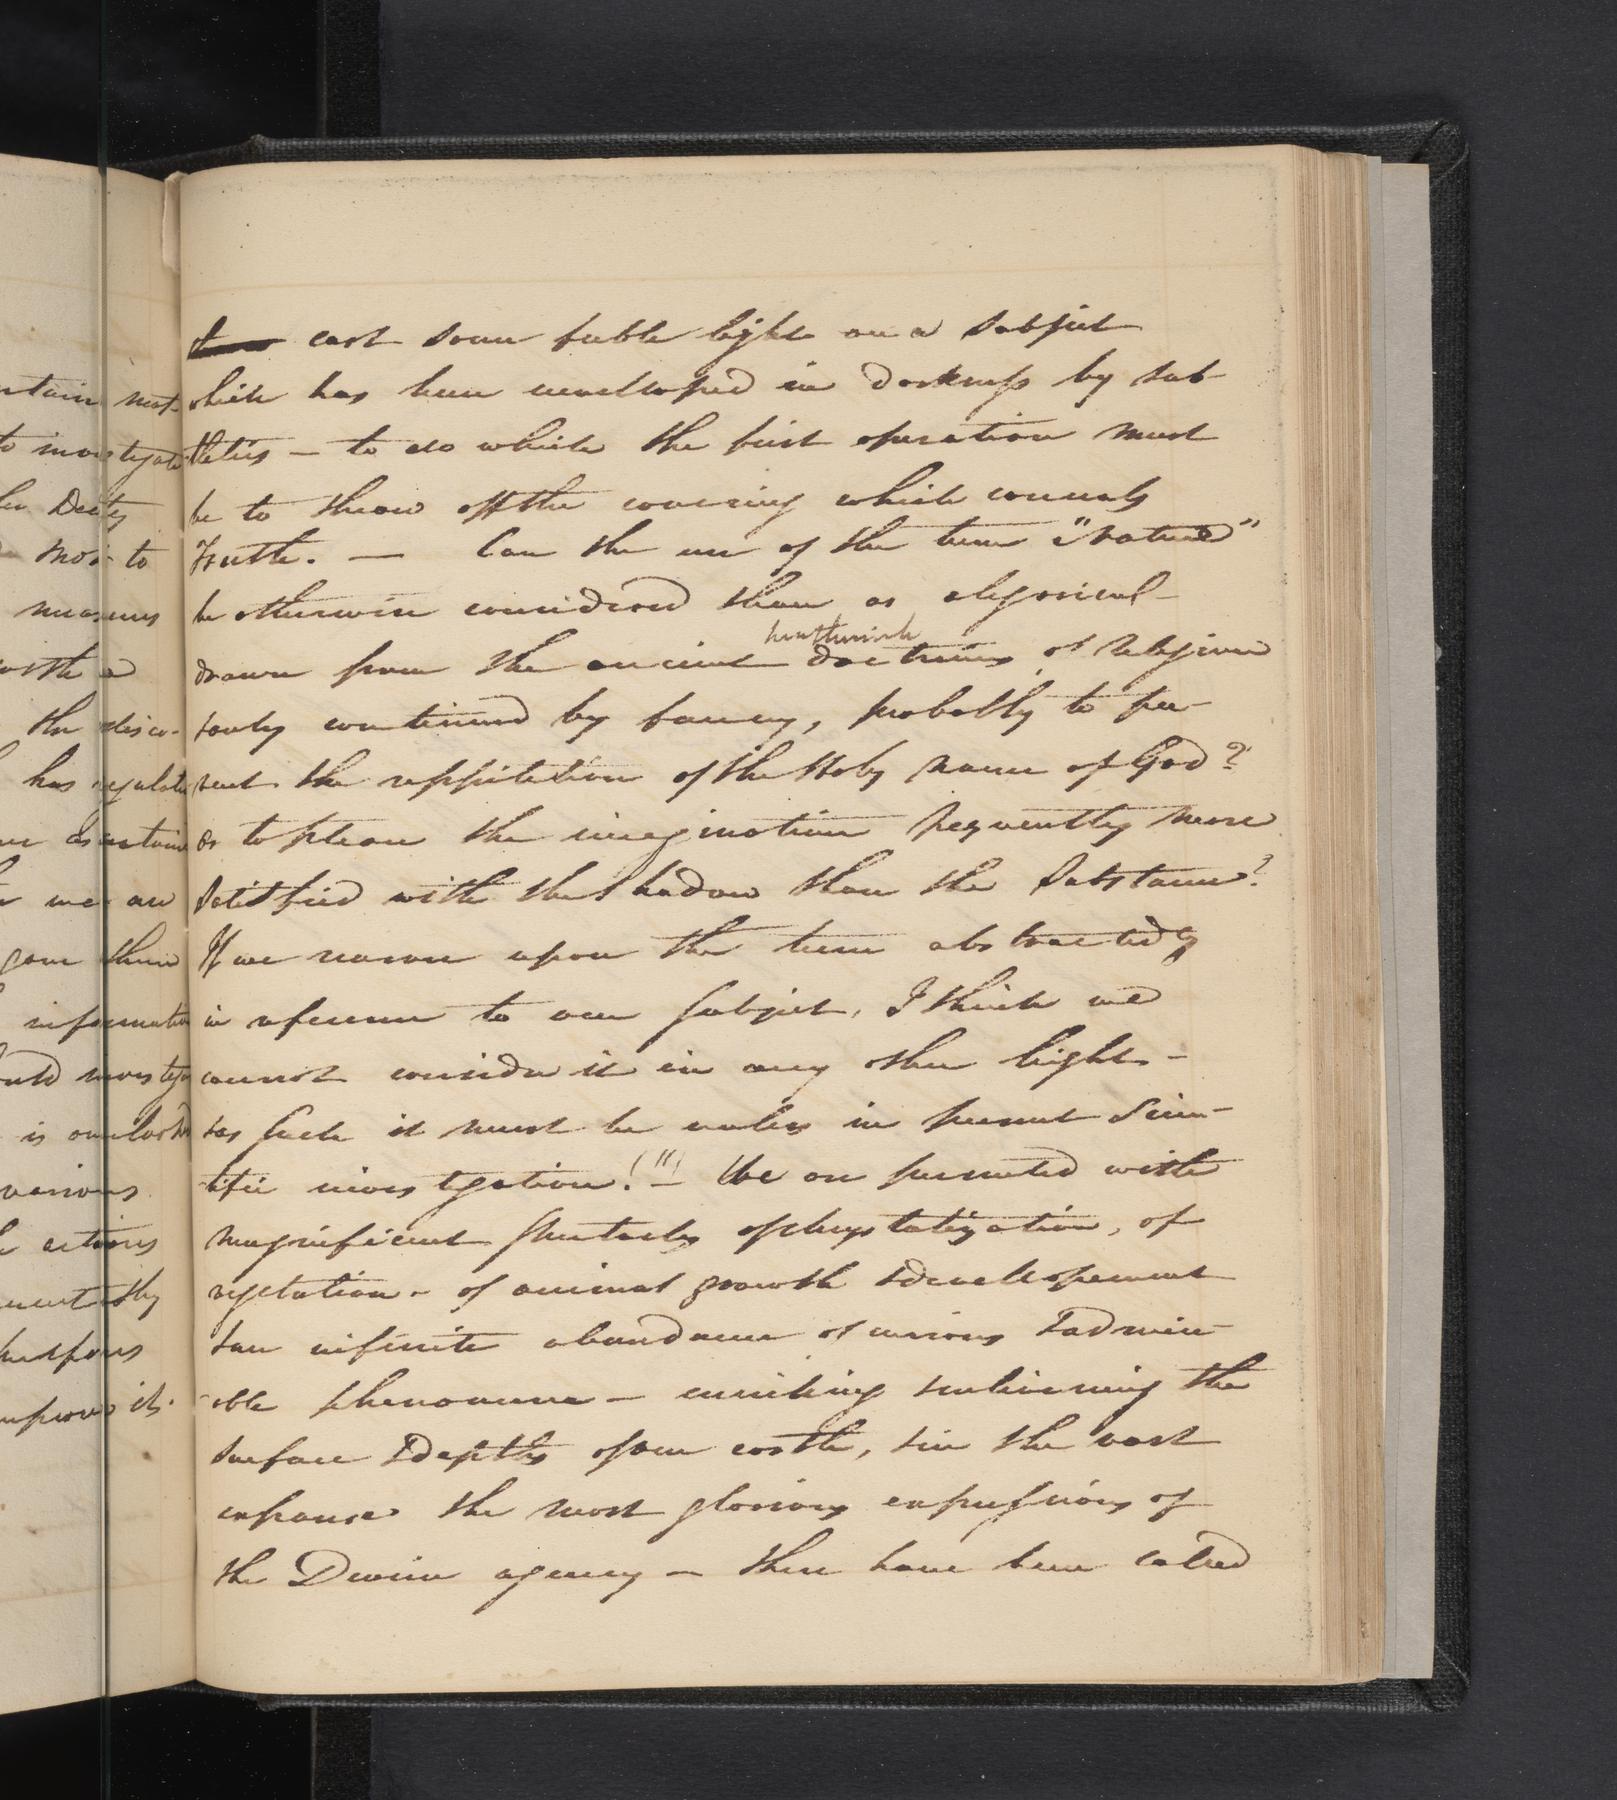 cast some feeble light on a subject
which has been enveloped in darkness by sub-
tleties — to do which the first operation must
be to throw off the covering which conceals
Truth. — Can the use of the term "Nature"
be otherwise considered than as alegorical -
heathenish
drawn from the ancient doctrines of religion
& only continued by fancy, probably to pre-
vent the reppitition of the Holy name of God?
or to please the imagination frequently more
satisfied with the shadow than the substance?
If we reason upon the term abstractedly
in reference to our subject, I think we
cannot consider it in any other light -
& as such it must be useless in present Scien-
-tific investigation! (")— We are presented with
magnificent spectacles of chrystalization, of
vegetation - of animal growth & developement
& an infinite abundance of curious & admir-
-able phenomena — enriching & enlivening the
surface & depths of our earth, & in the vast
expanse the most glorious expressions of
the Devine agency — these have been called
ntain mat-
to investigate
her Deity
nor to
measures
with a
the disco-
has regulate
we are
gave them
information
ould investiga
is our
various
actions
purposes
improve it.